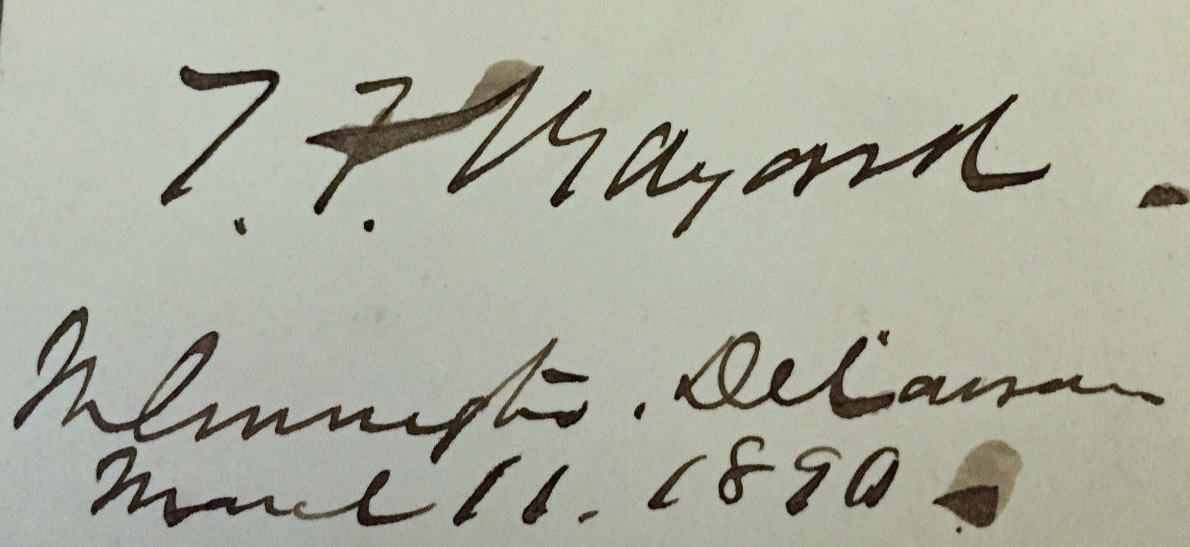 T. F. Bayard.
Wilmington. Delaware
March 11. 1890